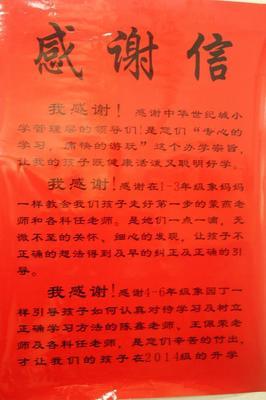 感谢信
我感谢！感谢中华世纪城小
学管理层的领导们！是您们“专心的
学习，痛快的游玩”这个办学宗旨，
让我的孩子既健康活泼又聪明好学。
我感谢！感谢在1-3年级象妈妈
一样教会我们孩子走好第一步的蒙燕老
师和各科任老师。是她们一点一滴，无
微不至的关怀、细心的发现，让孩子不
正确的想法得到及早的纠正及正确的引
导。
我感谢！感谢4-6年级象园丁一
样引导孩子如何认真对待学习及树立
正确学习方法的陈鑫老师、王佩荣老
师及各科任老师，是您们辛苦的付出，
才让我们的孩子在2014级的升学